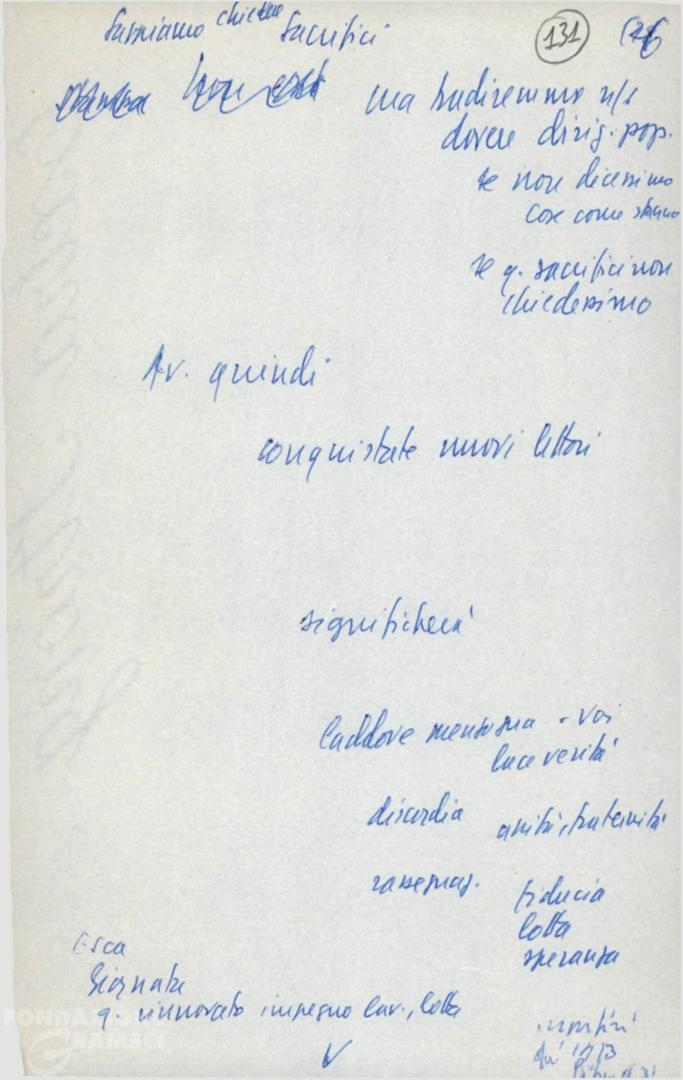 Sappiamo chiedere sacrifici
131 26
ma tradiremmo n/s
dovere dirig. pop.
se non dicessimo
cose come stanno
se q. sacrifici non
chiedessimo
Av. quindi
conquistate nuovi lettori
significherà
laddove menzogna - voi
luce verità
discordia unità, fraternità
rassegnaz. fiducia
lotta
speranza
Esca
Giornate
q. rinnovato impegno lav., lotta
FONDAZIONE
GRAMSCI